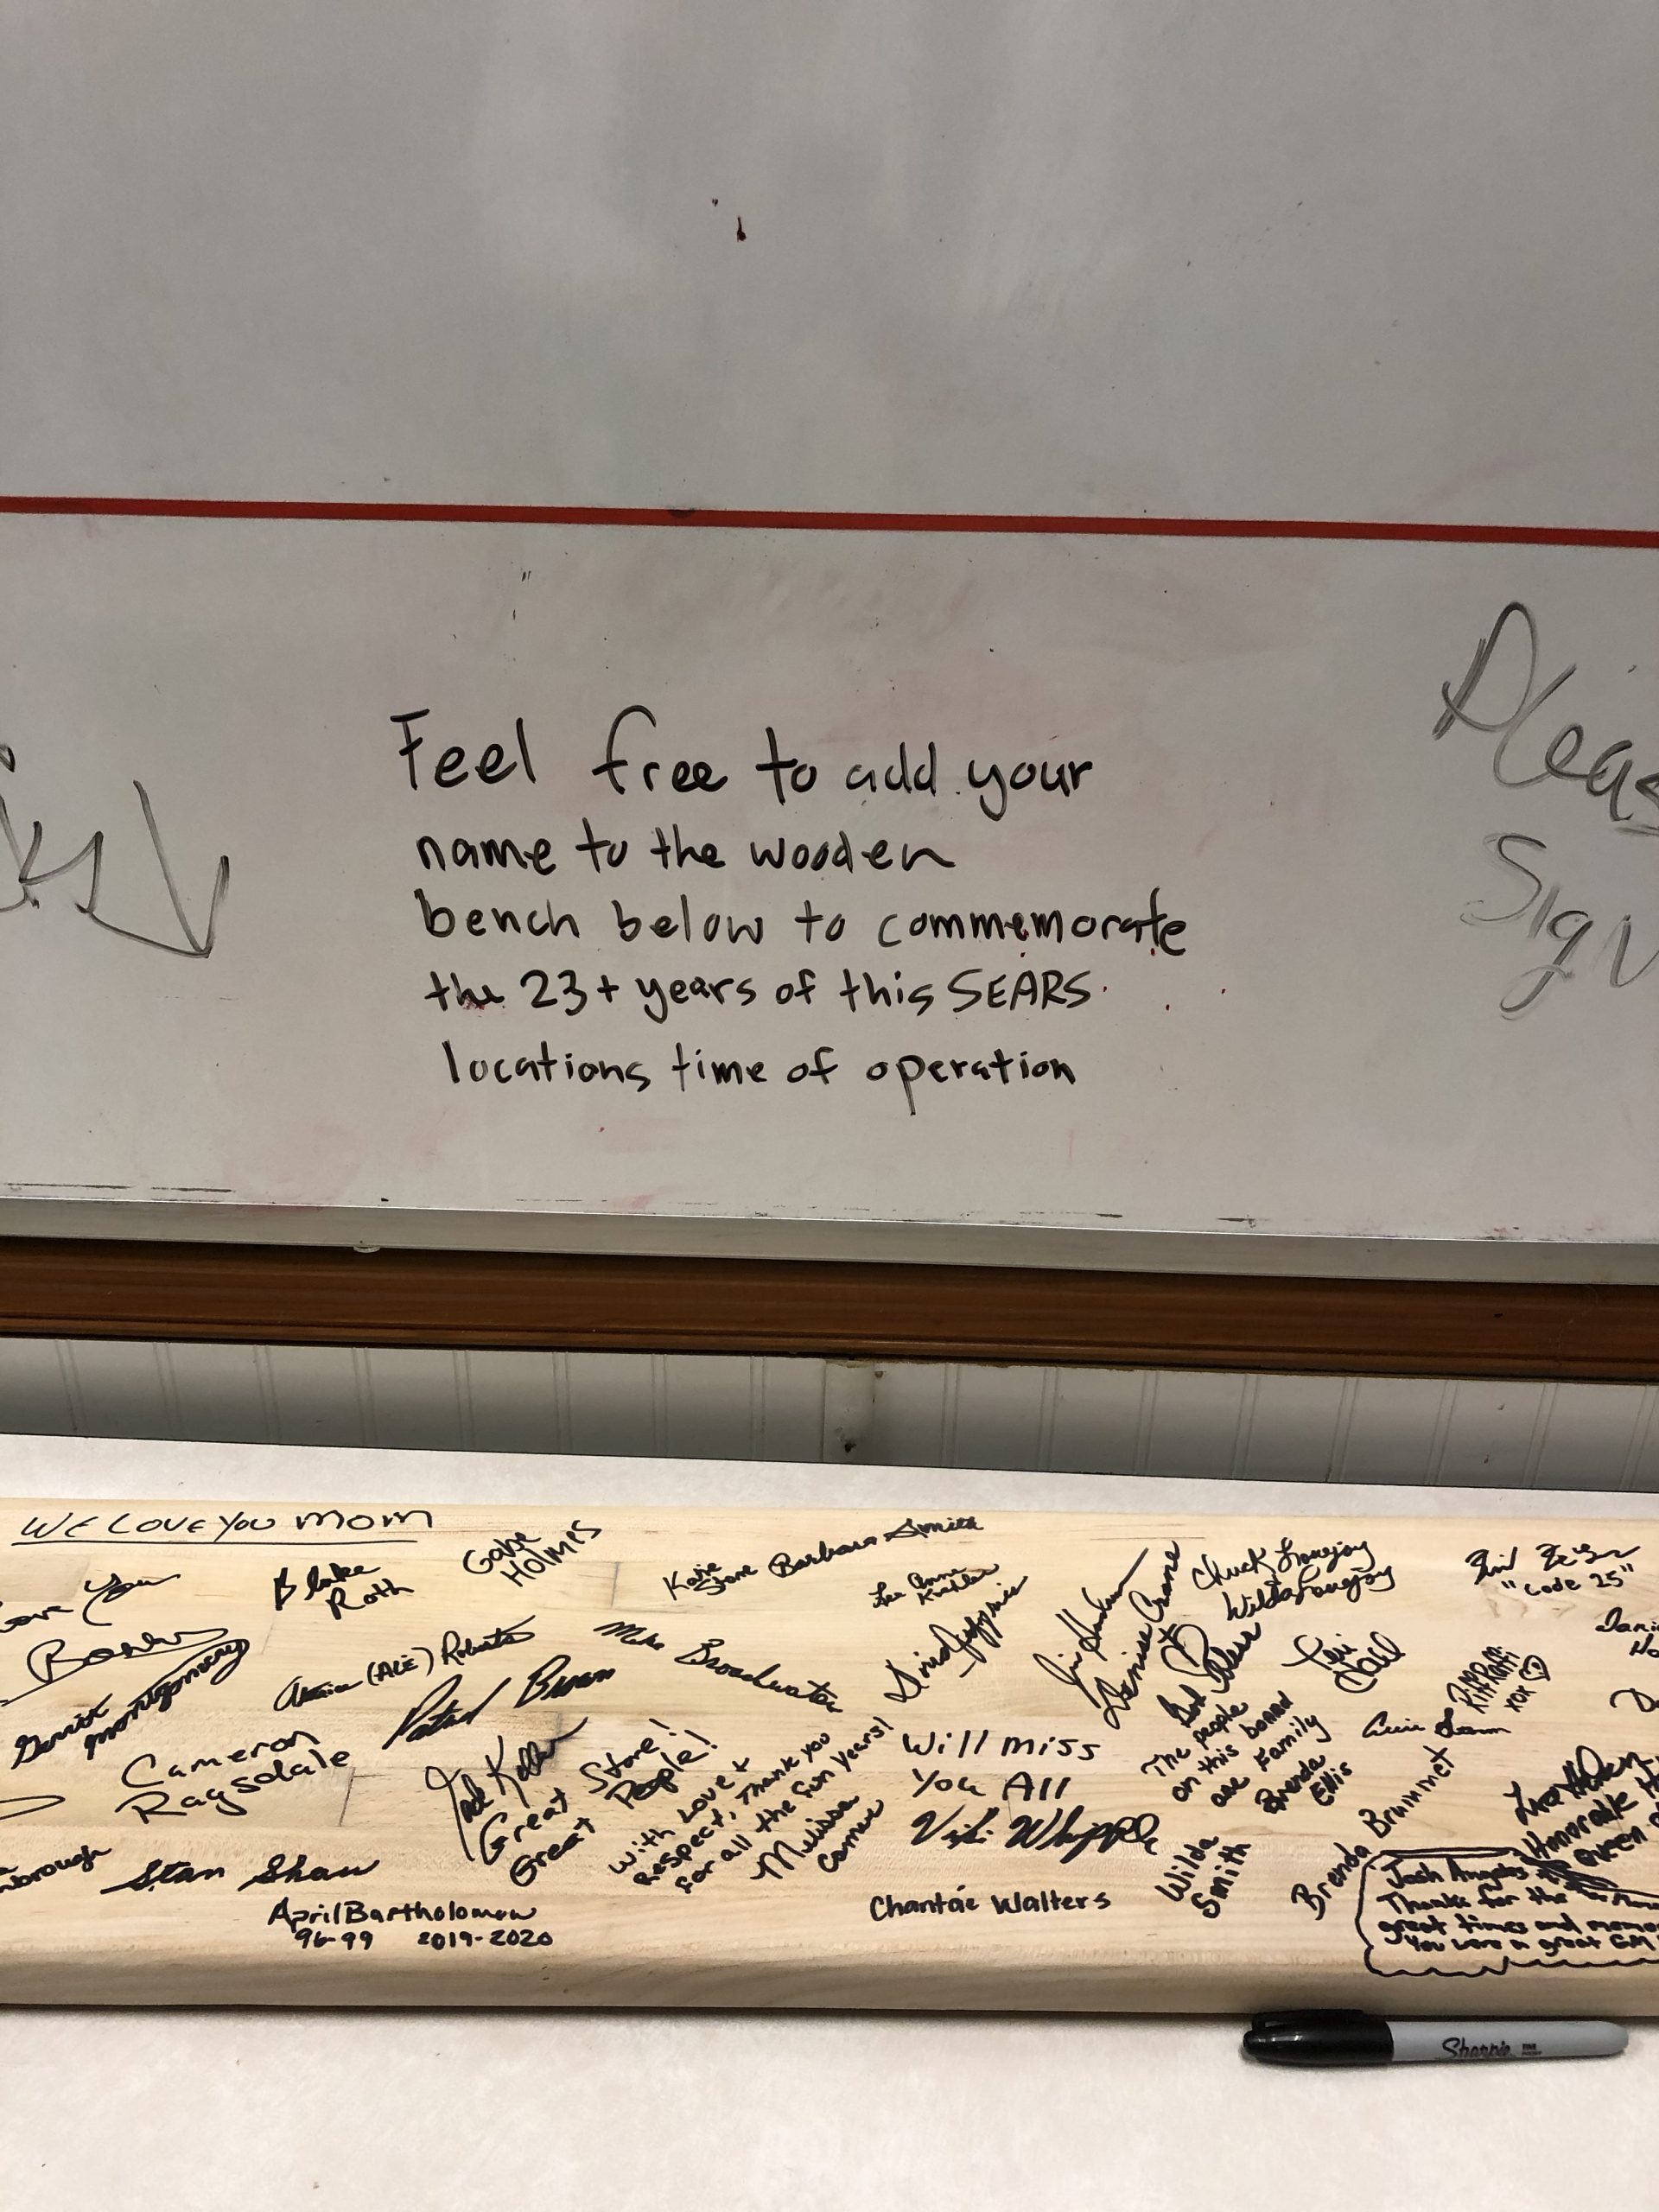 Pleas
Sign
Feel free to add your
name to the wooden
bench below to commemorate
the 23+ years of this SEARS
locations time of operation
WE LOVE YOU MOM
Love You
Blake
Roth
Gabe
HOLMES
Katie
Stone
Barbara Smith
Lee Anne
Chuck Lovejoy
Wilda Lovejoy
"Code 25"
Garrit
Montgomery
(ALE) Roberts
Mike Broadwater
Denise Crane
Teri
RIP RAM
KitKat
XOX
Cameron
Ragsdale
Great Store!
Great People!
With Love +
Respect, Thank you
for all the fun years!
Melissa
Will miss
You All
Viki Whipple
The people
on this board
are Family
Brenda
Ellis
Brenda Brummet
Stan Shaw
April Bartholomew
96-99 2019-2020
Chantáe Walters
Wilda
Smith
Josh Angeles
Thanks for the
great times and memo
You were a great GM
Sharpie